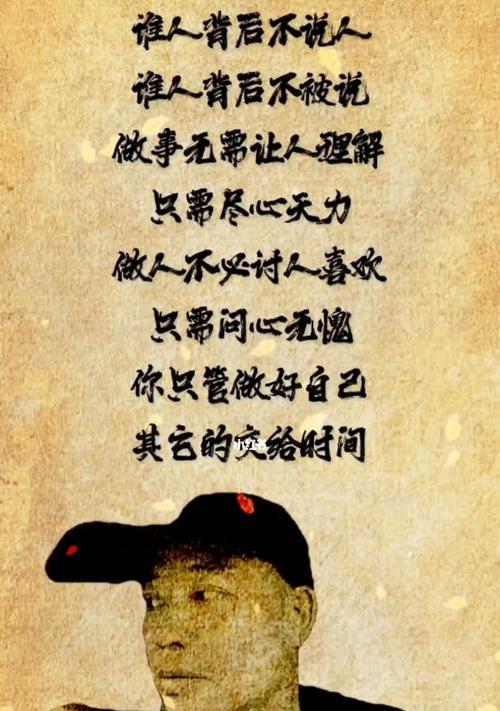 谁人背后不说人
谁人背后不被说
做事无需让人理解
只需尽心天力
做人不必讨人喜欢
只需问心无愧
你只管做好自己
其它的交给时间
小红书